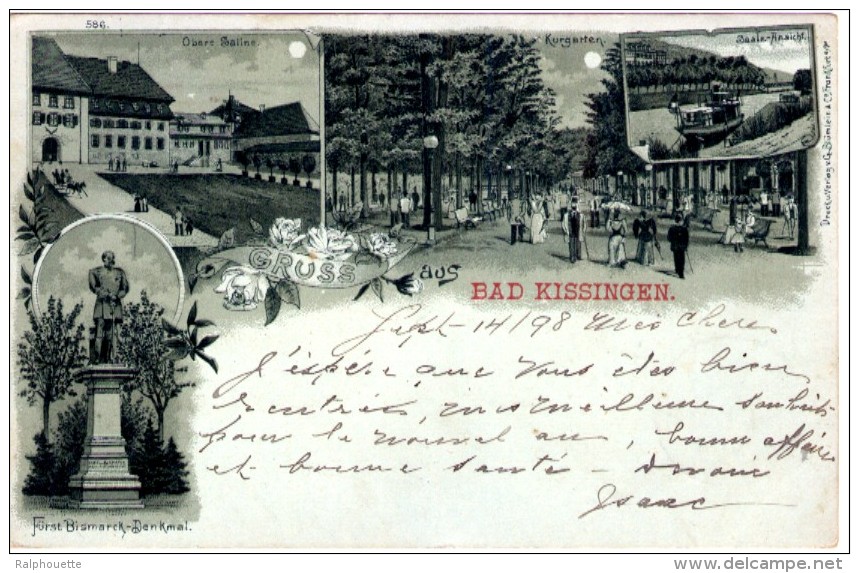 586.
Obere Saline.
Kurgarten.
Saale-Ansicht.
Druck u. Verlag v. G. Blümlein & Co. Frankfurt a/M
GRUSS aus
BAD KISSINGEN.
Fürst Bismarck-Denkmal.
Sept 14/98 Mes Chers
J'espère que vous êtes bien
rentrés, mes meilleurs souhaits
pour le nouvel an, bonne affaire
et bonne santé –
Isaac
Ralphouette
delcampe.net